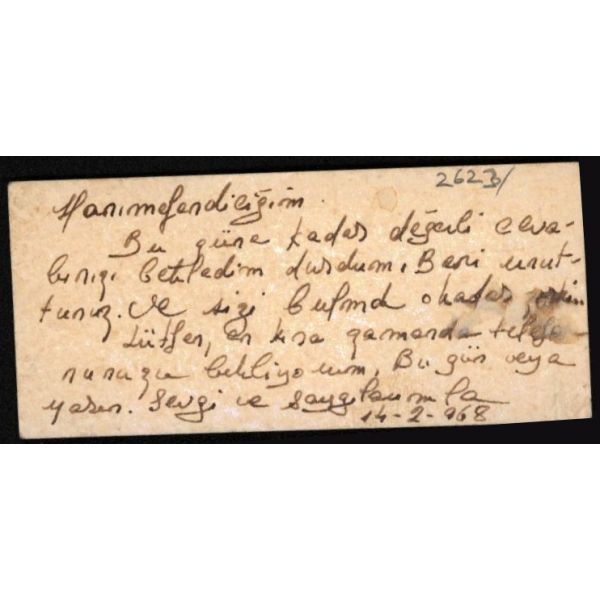 2623/
Hanımefendiciğim.
Bu güne kadar değerli ceva-
bınızı bekledim durdum. Beni unut-
tunuz. Ve sizi bulmd okadar
Lütfen, en kısa zamanda telefo-
nunuzu bekliyorum. Bu gün veya
yarın. Sevgi ve saygılarımla
14-2-968